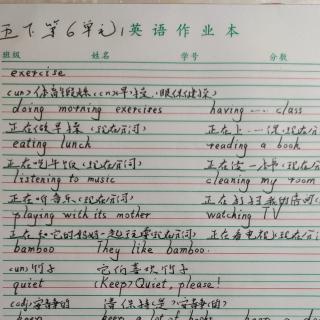 五下第6单元 英语作业本
班级 姓名 学号 分数
exercise
doing morning exercises having ... class
正在做早操(现在分词) 正在上...课(现在分词)
eating lunch reading a book
正在吃午饭(现在分词) 正在读一本书(现在分词)
listening to music cleaning my room
正在听音乐(现在分词) 正在打扫我的房间
playing with its mother watching TV
正在和它的妈妈一起玩耍(现在分词) 正在看电视(现在分词)
bamboo They like bamboo.
(un)竹子 它们喜欢竹子
quiet (Keep) Quiet, please!
(adj)安静的 请保持安静的
keep keep a lot of books